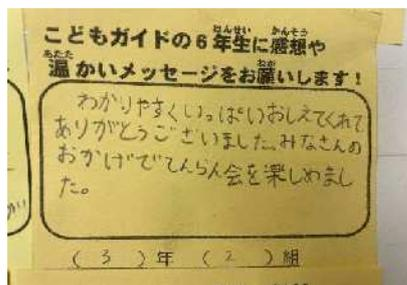 こどもガイドの6年生に感想や
温かいメッセージをお願いします！
わかりやすくいっぱいおしえてくれて
ありがとうございました。みなさんの
おかげでてんらん会を楽しめまし
た。
（3）年（2）組